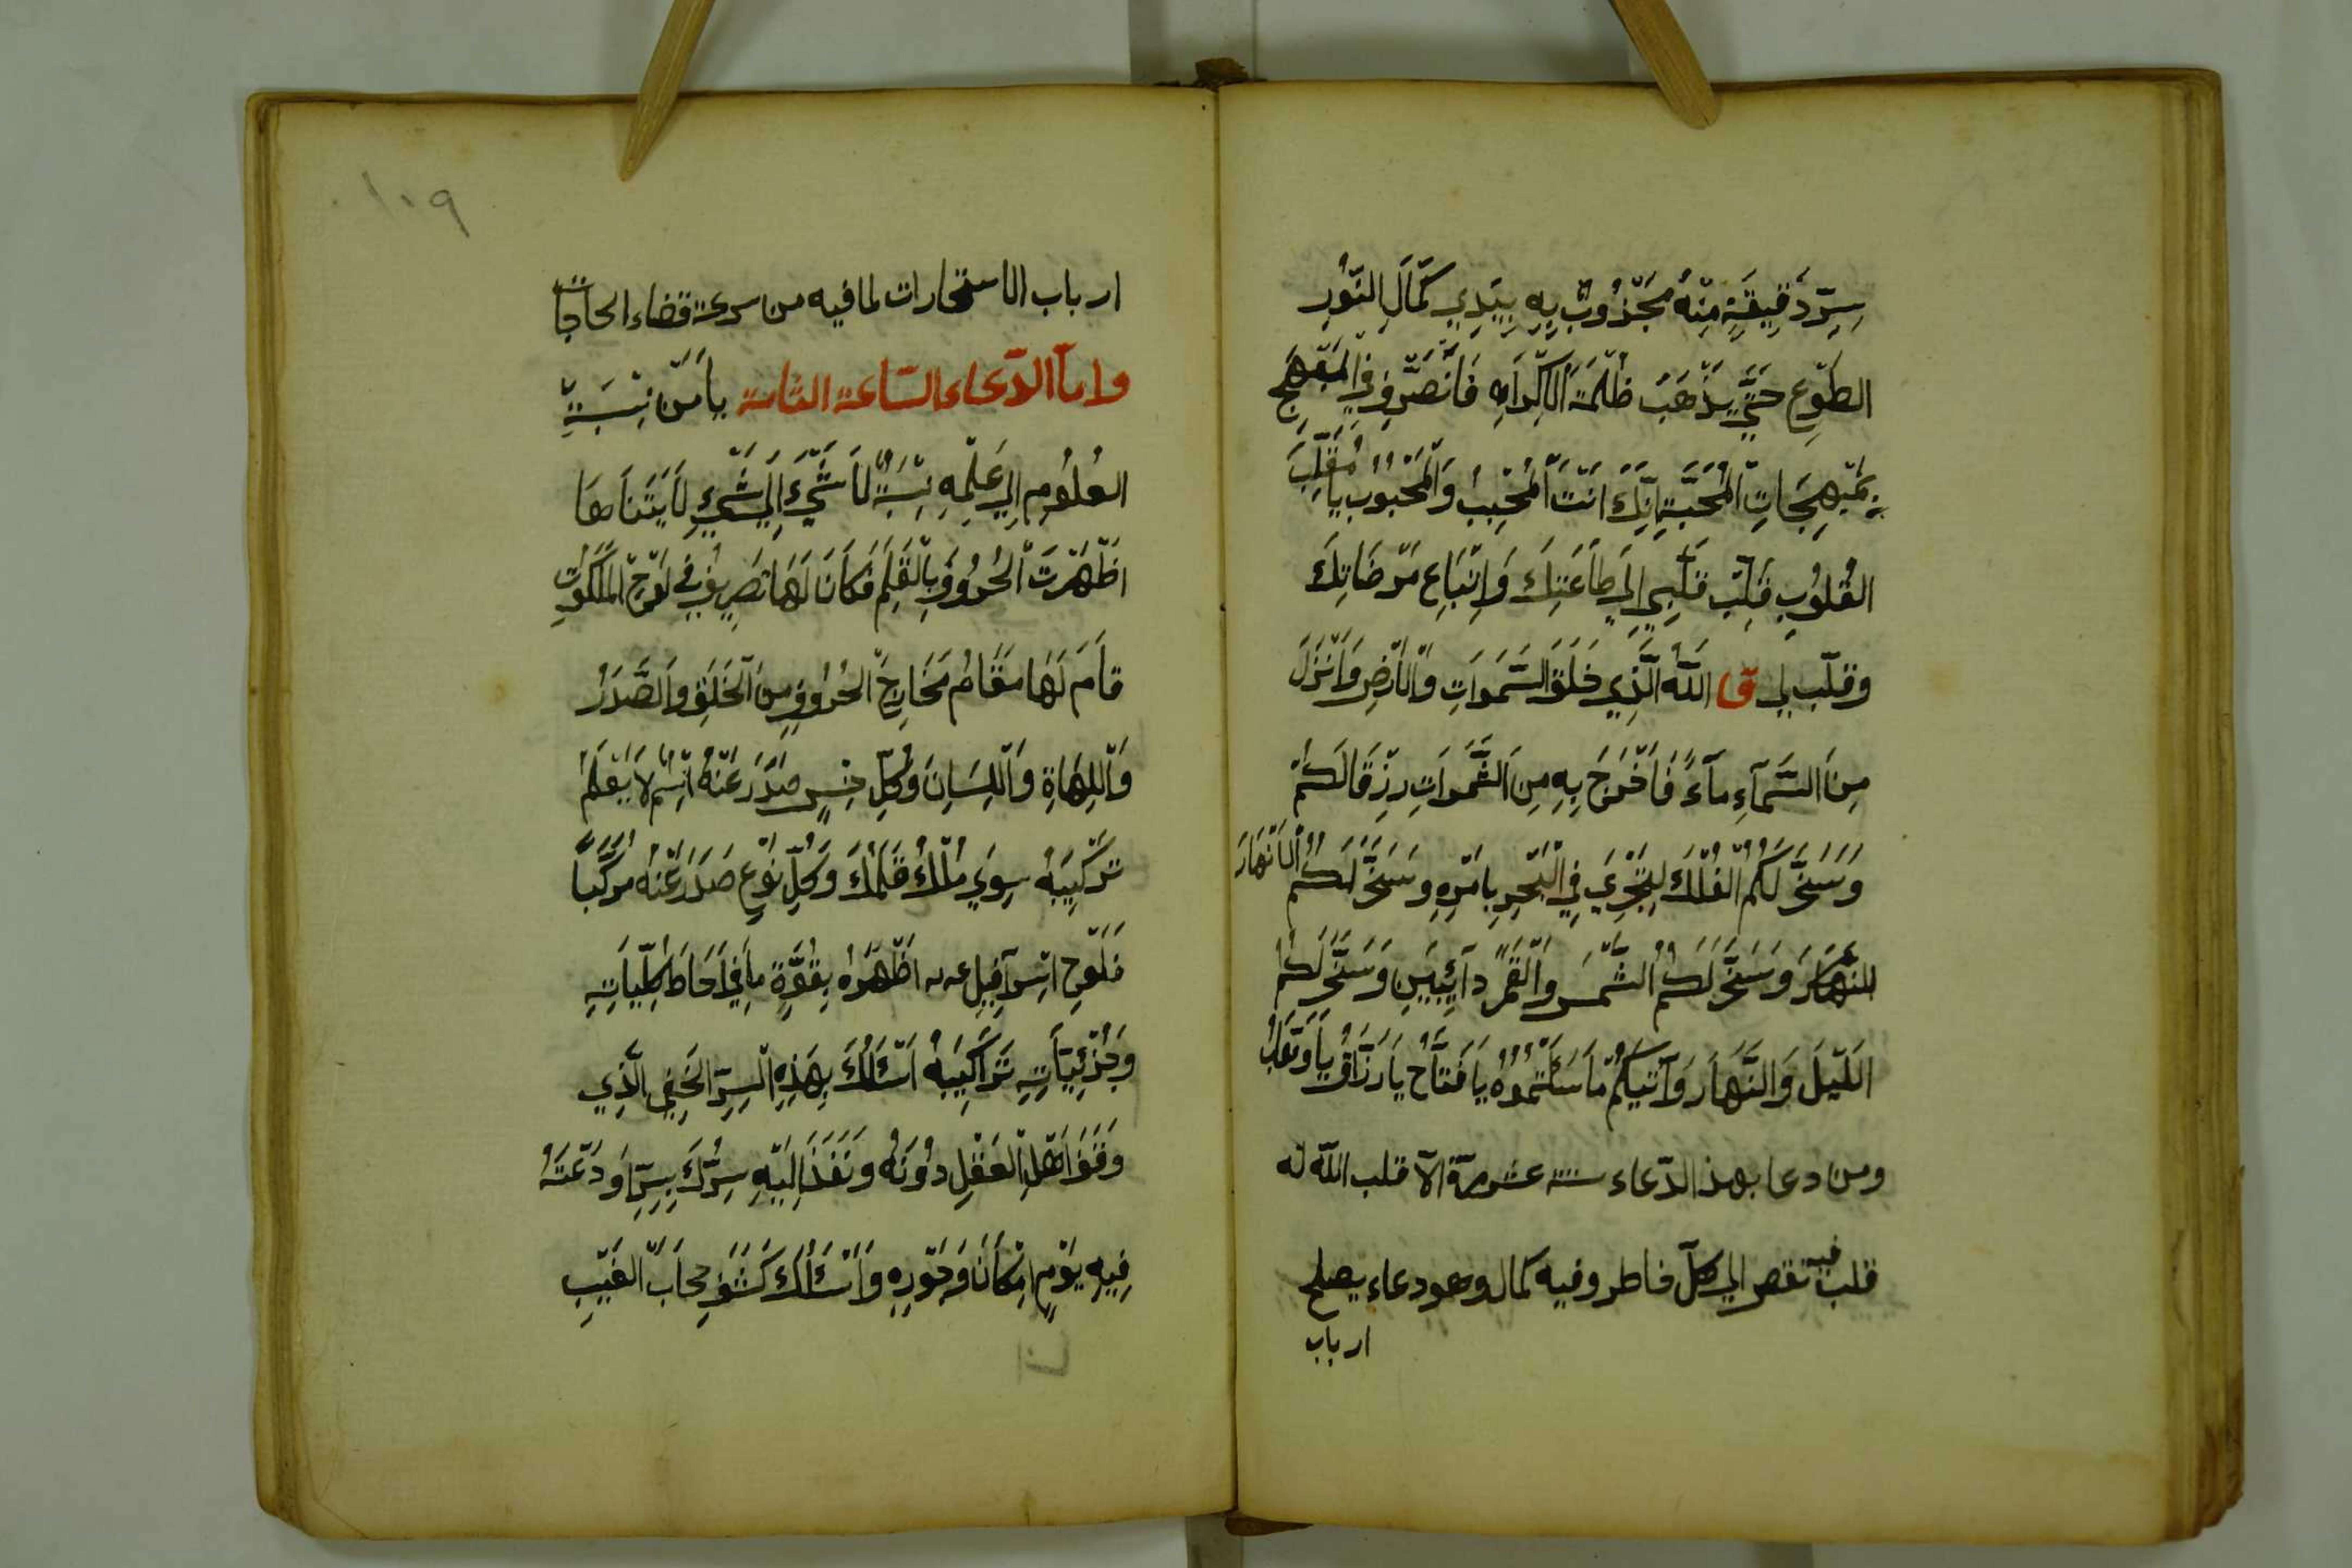 سِرِّ دَقِيقَةٍ مِنْهُ مَجْذُوبٌ بِهِ بِيَدِي كَمَالِ النُّورِ
الطَّوْعِ حَتَّى يَذْهَبَ ظُلْمَةَ الْاِكْرَاهِ فَاَنْصَرِفُ فِي الْمُبْهِجِ
بِمُبْهِجَاتِ الْمُحَبَّةِ اِنَّكَ اَنْتَ الْمُحِبُّ وَالْمَحْبُوبُ يَا مُقَلِّبَ
الْقُلُوبِ قَلِّبْ قَلْبِي اِلَى طَاعَتِكَ وَاِتِّبَاعِ مَرْضَاتِكَ
وقلّب لى اللّٰهُ الَّذِي خَلَقَ السَّمَوَاتِ وَالْاَرْضِ وَاَنْزَلَ
مِنَ السَّمَآءِ مَآءً فَاَخْرَجَ بِهِ مِنَ الثَّمَرَاتِ رِزْقًا لَكُمْ
وَسَخَّرَ لَكُمُ الْفُلْكَ لِتَجْرِيَ فِي الْبَحْرِ بِاَمْرِهِ وَسَخَّرَ لَكُمُ الْاَنْهَارَ
وَسَخَّرَ لَكُمُ الشَّمْسَ وَالْقَمَرَ دَآئِبَيْنِ وَسَخَّرَ لَكُمُ
اللَّيْلَ وَالنَّهَارَ وَآتَيكُمْ مَا سَئَلْتُمُوهُ يَا فَتَّاحُ يَا رَزَّاقُ يَا وَهَّابُ
ومن دعا بهذ الدّعاء ستة عشر مرّة الّا قلب اللّٰه له
قلب فيه تقصر الى كلّ خاطر وفيه كمال وهو دعاء يصلح
ارباب
١٠٩
ارباب الاستخارات لما فيه من سرعة قضاء الحاجات
وامّا الدّعاء السّاعة الثامنة يَا مَنْ نِسْبَةُ
الْعُلُومِ اِلَى عِلْمِهِ نِسْبَةُ لَا شَيْءَ اِلَى شَيْءٍ لَا يَتَنَاهَا
اَظْهَرْتَ الْحُرُوفَ بِالْقَلَمِ فَكَانَ لَهَا تَصْرِيفٌ فِي لَوْحِ الْمَلَكُوتِ
قَامَ لَهَا مَقَامُ مَخَارِجِ الْحُرُوفِ مِنَ الْحَلْقِ وَالصَّدْرُ
وَاللَّهَاةِ وَاللِّسَانِ وَكُلِّ جِنْسٍ صَدَرَ عَنْهُ اِسْمٌ لَا يَعْلَمُ
تَرْكِيبَهُ سِوَى مُلْكُ قَلَمِكَ وَكُلِّ نَوْعٍ صَدَرَ عَنْهُ مُرَكَّبًا
فَلَوْحِ اِسْرَآفِيلِ اَظْهَرَهُ بِقُوَّةِ مَا فِي اَحَاطَ كُلِّيَّاتِهِ
وَجُزْئِيَّاتِهِ تَرَاكِيبَهُ اَسْئَلُكَ بِهَذِهِ السِّرِّ الْخَفِي الَّذِي
وَقَفَ اَهْلُ الْعَقْلِ دُونَهُ وَنَفَذَ اِلَيْهِ سِرُّكَ بِسِرٍّ اَوْدَعْتَهُ
فِيهِ يَوْمِ اِمْكَانَ وَجُودِهِ وَاَسْئَلُكَ كَشْفِ حِجَابَ الْغَيْبِ